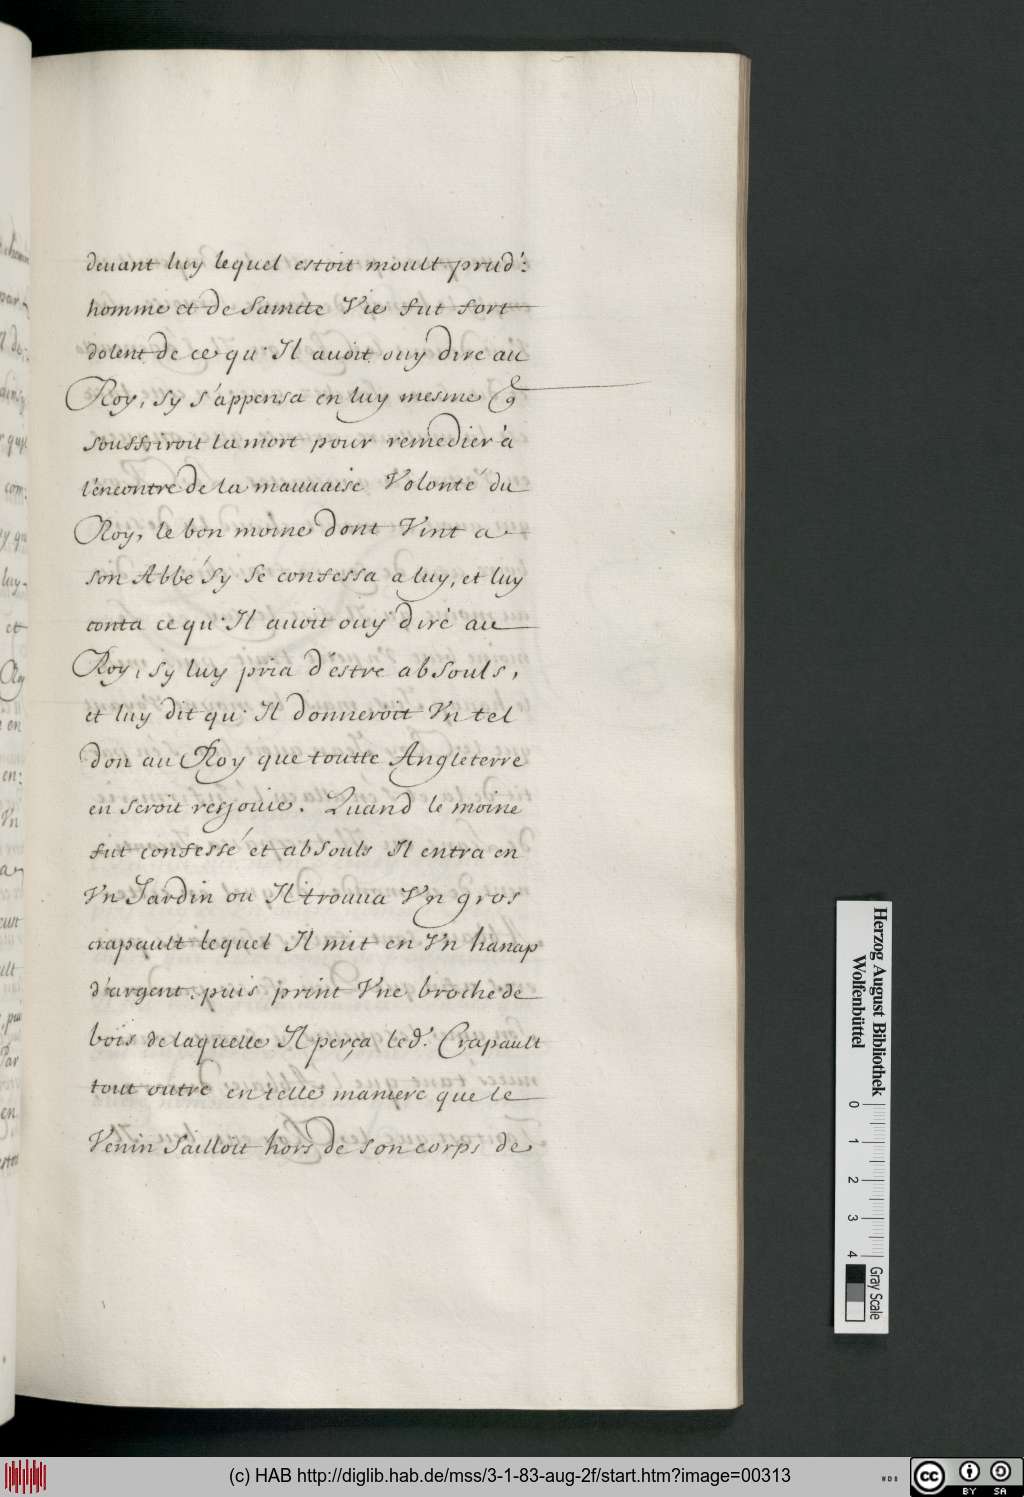 devant luy lequel estoit moult prud':
homme et de Saincte Vie fut fort
dolent de ce qu' Il avoit ouy dire au
Roy, sy s'appensa en luy mesme Q
souffriroit la mort pour remedier à
l'encontre de la mauvaise Volonté du
Roy, le bon moine dont Vint a
son Abbé Sy se confessa a luy, et luy
conta ce qu' Il avoit ouy dire au
Roy, sy luy pria d'estre absouls,
et luy dit qu' Il donneroit Vn tel
don au Roy que toutte Angleterre
en seroit resjouie. Quand le moine
fut confessé et absouls Il entra en
Vn Jardin ou Il trouva Vn gros
crapault lequel Il mit en Vn hanap
d'argent. puis print Vne broche de
bois de laquelle Il perça led. Crapault
tout outre en telle maniere que le
Venin Sailloit hors de son corps de
Herzog August Bibliothek
Wolfenbüttel
0 1 2 3 4
Gray Scale
(c) HAB http://diglib.hab.de/mss/3-1-83-aug-2f/start.htm?image=00313
WDB
cc BY SA